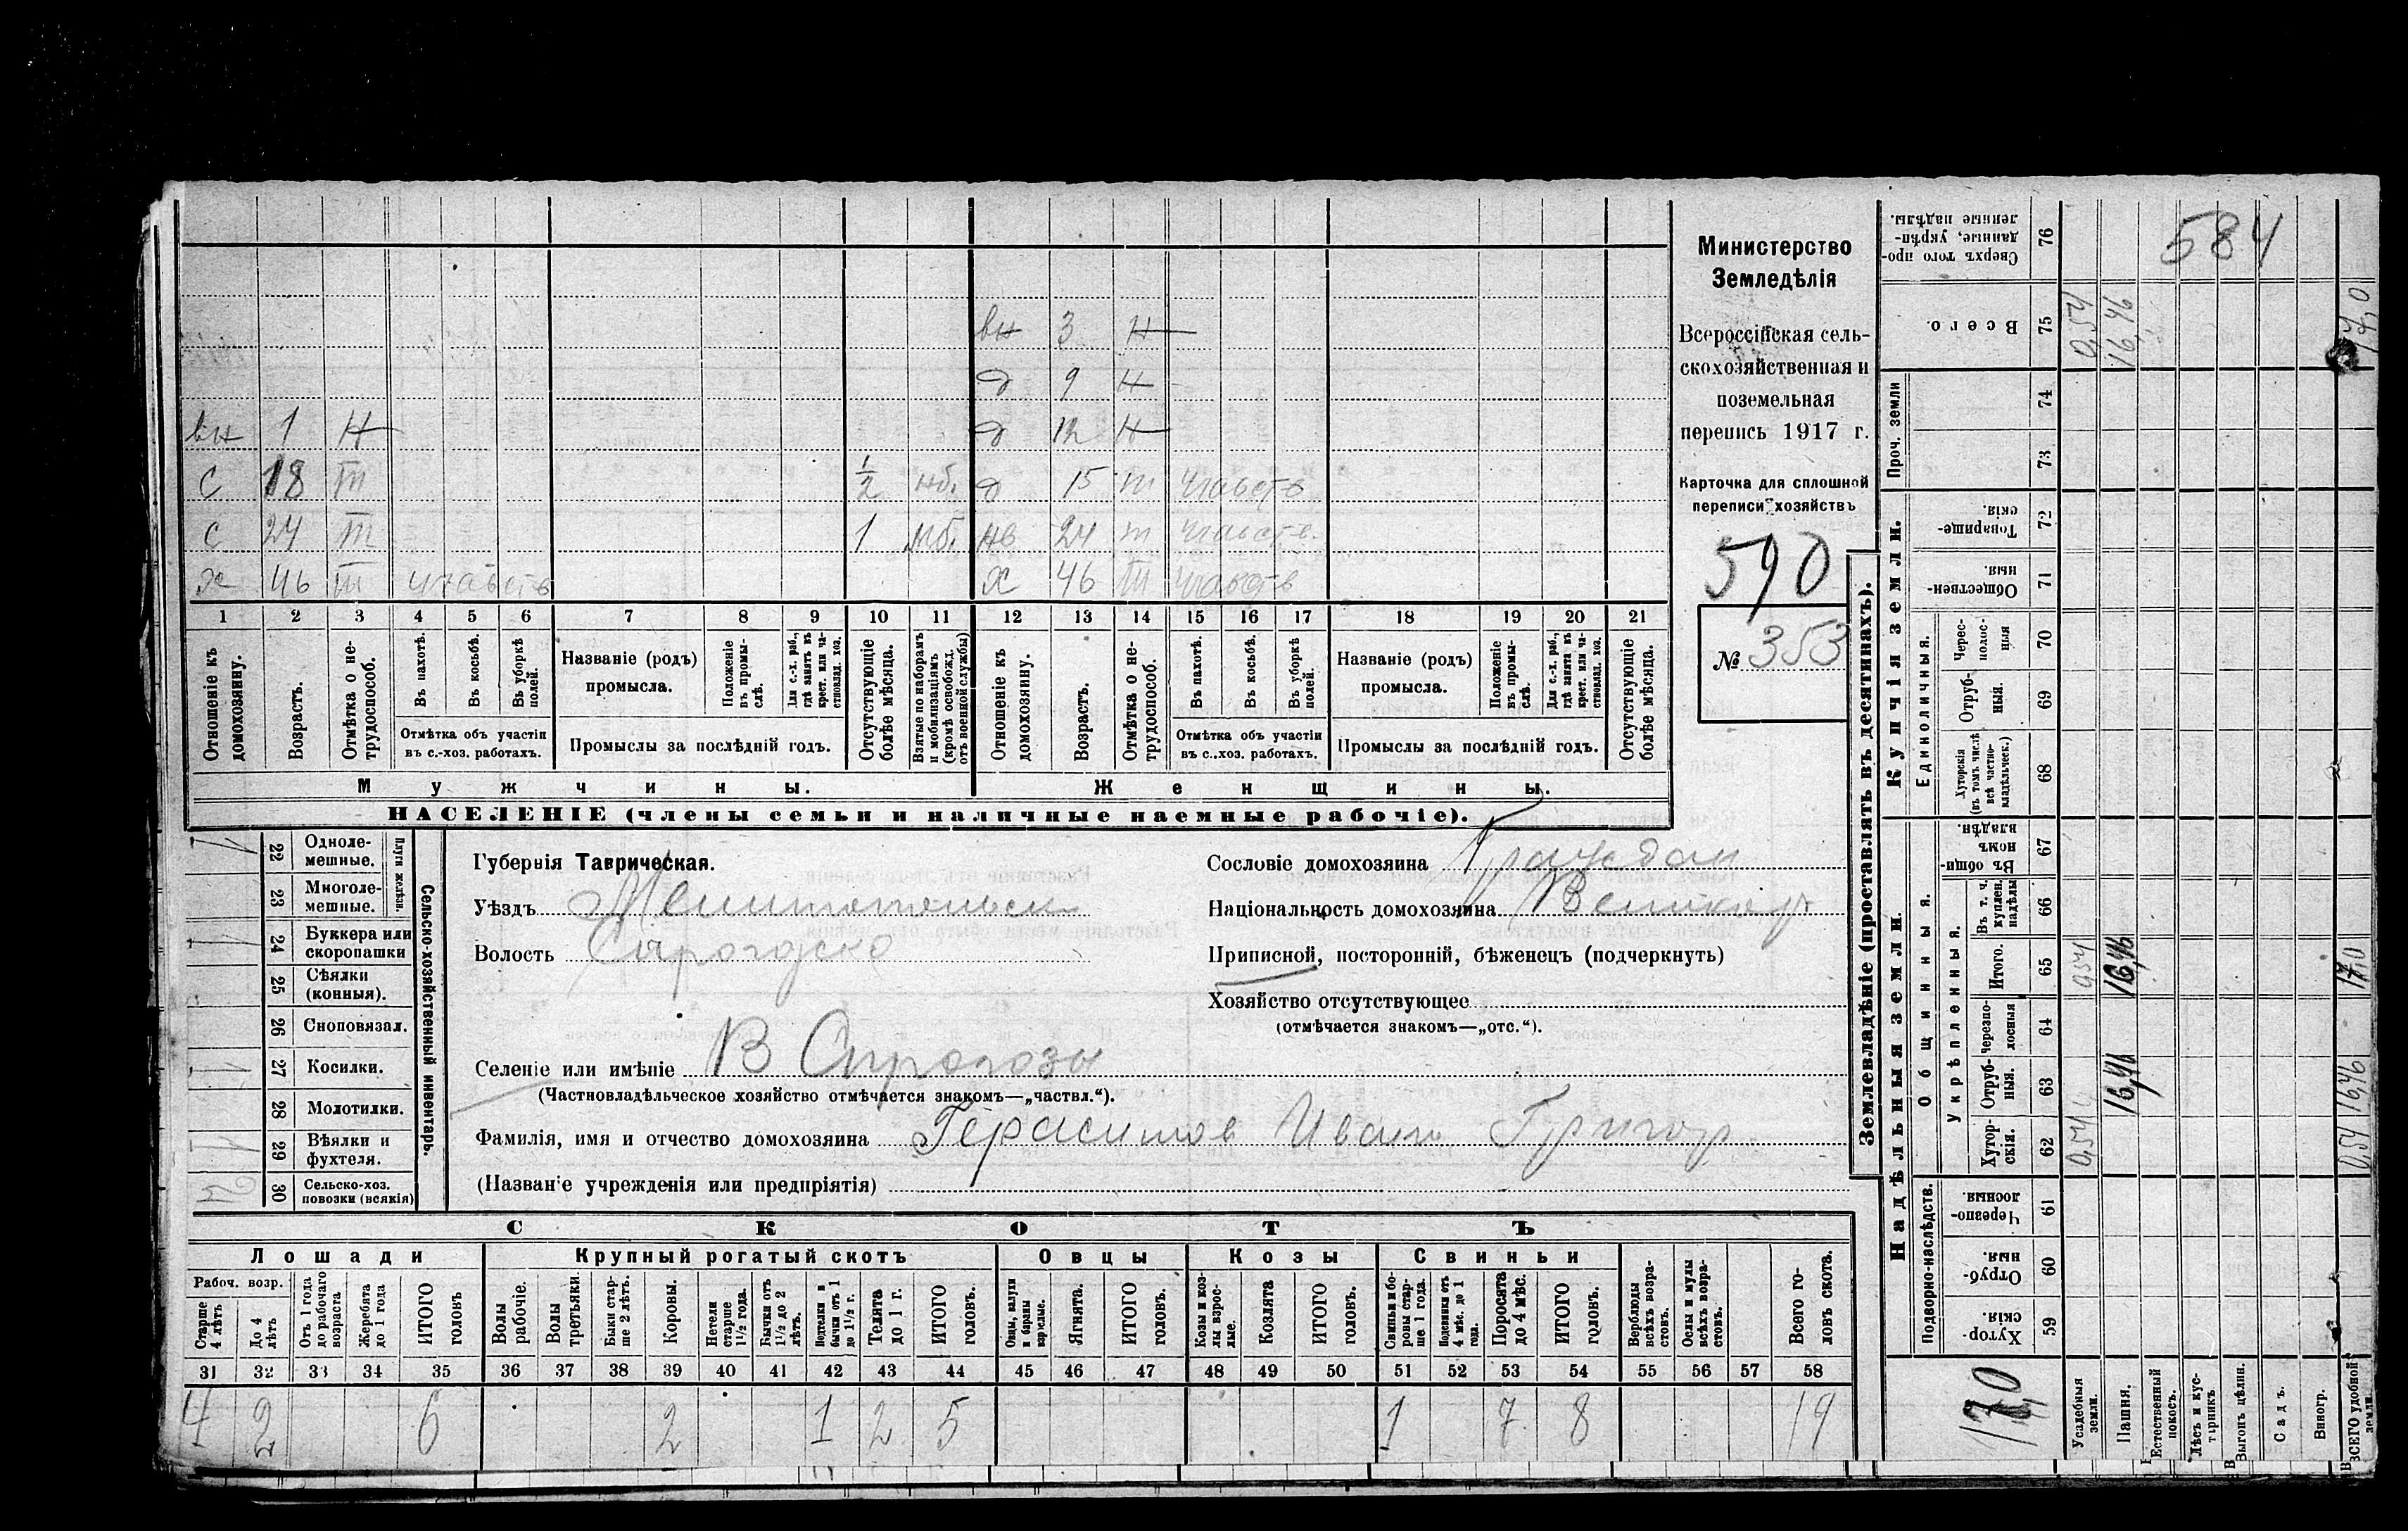 вн 3 н
д 9 н
вн 1 н д 12 н
С 18 m 1/2 мб. д 15 m участв
С 24 m 1 мб. нв 24 m участв.
х 46 m участв х 46 m участв
1 2 3 4 5 6 7 8 9 10 11 12 13 14 15 16 17 18 19 20 21
Отношеніе къ домохозяину.
Возрастъ.
Отмѣтка о не-трудоспособ.
Въ пахотѣ.
Въ косьбѣ.
Въ уборкѣ полей.
Отмѣтка объ участіи
въ с.-хоз. работахъ.
Названіе (родъ)
промысла.
Положеніе въ промы-слѣ.
Для с.-х. раб., гдѣ занятъ въ крест. или ча-стновлад. хоз.
Промыслы за послѣдній годъ.
Отсутствующіе болѣе мѣсяца.
Взятые по наборамъ и мобилизаціямъ (кромѣ освобожд. отъ военной службы)
Отношеніе къ домохозяину.
Возрастъ.
Отмѣтка о не-трудоспособ.
Въ пахотѣ.
Въ косьбѣ.
Въ уборкѣ полей.
Отмѣтка объ участіи
въ с..хоз. работахъ.
Названіе (родъ)
промысла.
Положеніе въ промы-слѣ.
Для с.-х. раб., гдѣ занята въ крест. или ча-стновлад. хоз.
Промыслы за послѣдній годъ.
Отсутствующіе болѣе мѣсяца.
Мужчины. Женщины.
НАСЕЛЕНІЕ (члены семьи и наличные наемные рабочіе).
Министерство
Земледѣлія
Всероссійская сель-
скохозяйственная и
поземельная
перепись 1917 г.
Карточка для сплошной
переписи хозяйствъ
590
№ 353
Сельско-хозяйственный инвентарь.
Плуги желѣзн.
22 Одноле-мешные. 1
23 Многоле-мешные.
24 Буккера или скоропашки 1
25 Сѣялки (конныя).
26 Сноповязал.
27 Косилки. 1
28 Молотилки.
29 Вѣялки и фухтеля. 1
30 Сельско-хоз. повозки (всякія) 2
Губернія Таврическая.
Уѣздъ Мелитопольск
Волость Сирогозско
Селеніе или имѣніе В Сирогозы
(Частновладѣльческое хозяйство отмѣчается знакомъ—„частвл.“).
Фамилія, имя и отчество домохозяина Герасимов Иван Григор.
(Названіе учрежденія или предпріятія)
Сословіе домохозяина Граждан
Національность домохозяина Великор
Приписной, посторонній, бѣженецъ (подчеркнуть)
Хозяйство отсутствующее
(отмѣчается знакомъ—„отс.“).
СКОТЪ
Лошади Крупный рогатый скотъ Овцы Козы Свиньи
Рабоч. возр.
Старше 4 лѣтъ
До 4 лѣтъ
Отъ 1 года до рабочаго возраста
Жеребята до 1 года
ИТОГО головъ
Волы рабочіе.
Волы третьяки.
Быки стар-ше 2 лѣтъ.
Коровы.
Нетели старше 1½ года.
Бычки отъ 1½ до 2 лѣтъ.
Подтелки и бычки отъ 1 до 1½ г.
Телята до 1 г.
ИТОГО головъ.
Овцы, валухи и бараны взрослые.
Ягнята.
ИТОГО головъ.
Козы и коз-лы взрос-лые.
Козлята
ИТОГО головъ.
Свиньи и бо-ровы стар-ше 1 года.
Подсвинки отъ 4 мѣс. до 1 года.
Поросята до 4 мѣс.
ИТОГО головъ.
Верблюды всѣхъ возра-стовъ.
Ослы и мулы всѣхъ возра-стовъ.
Всего го-ловъ скота.
31 32 33 34 35 36 37 38 39 40 41 42 43 44 45 46 47 48 49 50 51 52 53 54 55 56 57 58
4 2 6 2 1 2 5 1 7 8 19
Землевладѣніе (проставлять въ десятинахъ).
584
76 Сверхъ того про-данные, укрѣп-ленные надѣлы.
75 Всего. 0,54 16,46 17,0
Проч. земли
74
73
Купчія земли.
72 Товарище-скія.
71 Обществен-ныя.
Единоличныя.
70 Черес-полос-ныя
69 Отруб-ныя.
68 Хуторскія (въ томъ числѣ всѣ частно-владѣльческ.)
Надѣльныя земли.
Общинныя.
67 Въ общи-номъ владѣн.
66 Въ т. ч. куплен. надѣлы
Укрѣпленныя.
65 Итого. 0,54 16,46 17,0
64 Черезпо-лосныя
63 Отруб-ныя. 16,46 16,46
62 Хутор-скія. 0,54 0,54
Подворно-наслѣдств.
61 Черезпо-лосныя.
60 Отруб-ныя.
59 Хутор-скія.
17,0
Усадебныя земли.
Пашня.
Естественный покосъ.
Лѣсъ и кус-тарникъ
Выгонъ цѣлин.
Садъ.
Виногр.
ВСЕГО удобной земли.